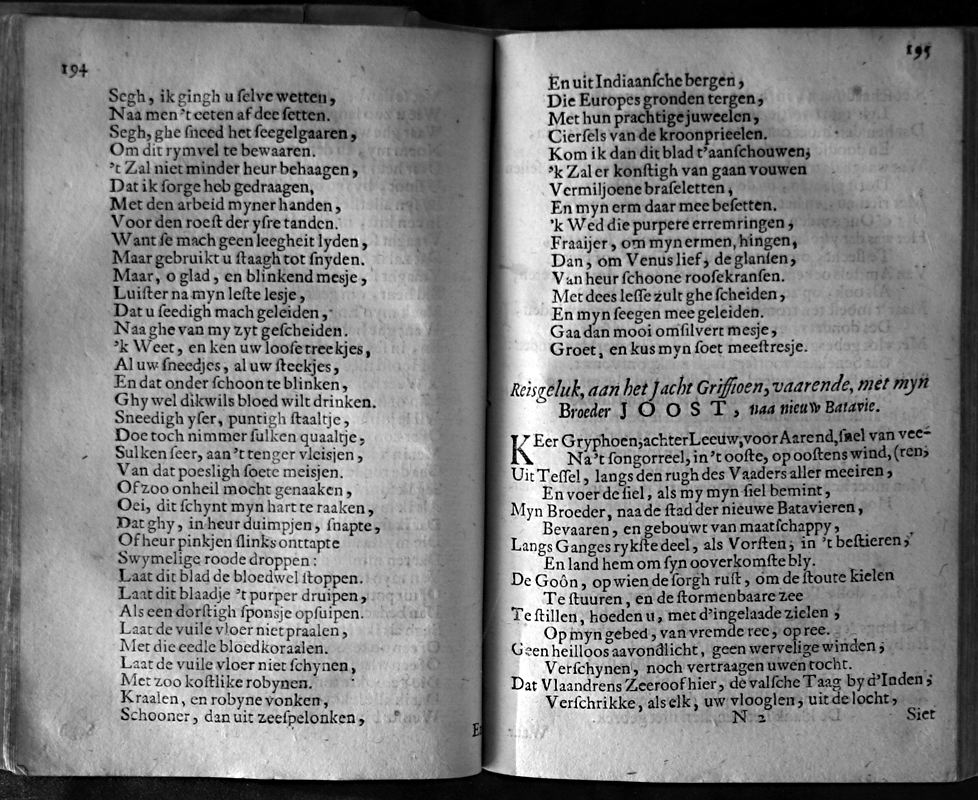 194
Segh, ik gingh u ſelve wetten,
Naa men 't eeten af dee ſetten.
Segh, ghe ſneed het ſeegelgaaren,
Om dit rymvel te bewaaren.
't Zal niet minder heur behaagen,
Dat ik ſorge heb gedraagen,
Met den arbeid myner handen,
Voor den roeſt der yſre tanden.
Want ſe mach geen leegheit lyden,
Maar gebruikt u ſtaagh tot ſnyden.
Maar, o glad, en blinkend mesje,
Luiſter na myn leſte lesje,
Dat u ſeedigh mach geleiden,
Naa ghe van my zyt geſcheiden.
'k Weet, en ken uw looſe treekjes,
Al uw ſneedjes, al uw ſteekjes,
En dat onder ſchoon te blinken,
Ghy wel dikwils bloed wilt drinken.
Sneedigh yſer, puntigh ſtaaltje,
Doe toch nimmer ſulken quaaltje,
Sulken ſeer, aan 't tenger vleisjen,
Van dat poesligh ſoete meisjen.
Of zoo onheil mocht genaaken,
Oei, dit ſchynt myn hart te raaken,
Dat ghy, in heur duimpjen, ſnapte,
Of heur pinkjen ſlinks onttapte
Swymelige roode droppen:
Laat dit blad de bloedwel ſtoppen.
Laat dit blaadje 't purper druipen,
Als een dorſtigh ſponsje opſuipen.
Laat de vuile vloer niet praalen,
Met die eedle bloedkoraalen.
Laat de vuile vloer niet ſchynen,
Met zoo koſtlike robynen.
Kraalen, en robyne vonken,
Schooner, dan uit zeeſpelonken,
195
En uit Indiaanſche bergen,
Die Europes gronden tergen,
Met hun prachtige juweelen,
Cierſels van de kroonprieelen.
Kom ik dan dit blad t'aanſchouwen;
'k Zal er konſtigh van gaan vouwen
Vermiljoene braſeletten,
En myn erm daar mee beſetten.
'k Wed die purpere erremringen,
Fraaijer, om myn ermen, hingen,
Dan, om Venus lief, de glanſen,
Van heur ſchoone rooſekranſen.
Met dees leſſe zult ghe ſcheiden,
En myn ſeegen mee geleiden.
Gaa dan mooi omſilvert mesje,
Groet, en kus myn ſoet meeſtresje.
Reisgeluk, aan het Jacht Griffioen, vaarende, met myn
Broeder JOOST, naa nieuw Batavie.
KEer Gryphoen, achter Leeuw, voor Aarend, ſnel van vee-
Na 't ſongorreel, in 't ooſte, op ooſtens wind, (ren,
Uit Teſſel, langs den rugh des Vaaders aller meeiren,
En voer de ſiel, als my myn ſiel bemint,
Myn Broeder, naa de ſtad der nieuwe Batavieren,
Bevaaren, en gebouwt van maatſchappy,
Langs Ganges rykſte deel, als Vorſten, in 't beſtieren,
En land hem om ſyn ooverkomſte bly.
De Goôn, op wien de ſorgh ruſt, om de ſtoute kielen
Te ſtuuren, en de ſtormenbaare zee
Te ſtillen, hoeden u, met d'ingelaade zielen,
Op myn gebed, van vremde ree, op ree.
Geen heilloos aavondlicht, geen wervelige winden,
Verſchynen, noch vertraagen uwen tocht.
Dat Vlaandrens Zeeroof hier, de valſche Taag by d'Inden,
Verſchrikke, als elk, uw vlooglen, uit de locht,
N 2
Siet